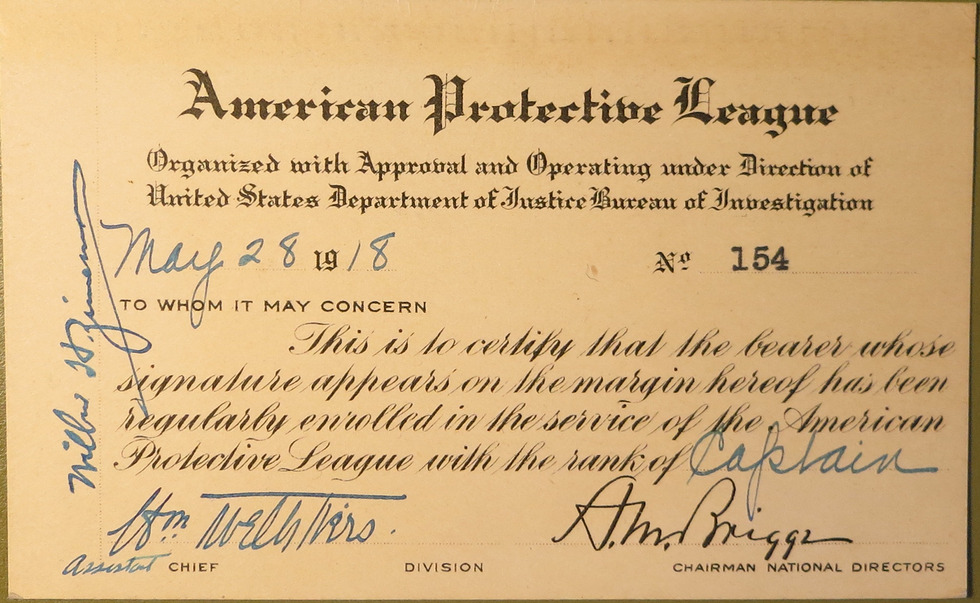 American Protective League
Organized with Approval and Operating under Direction of
United States Department of Justice Bureau of Investigation
May 28 1918 No 154
TO WHOM IT MAY CONCERN
This is to certify that the bearer whose
signature appears on the margin hereof has been
regularly enrolled in the service of the American
Protective League with the rank of Captain
Wm A. M. Briggs
Assistant CHIEF DIVISION CHAIRMAN NATIONAL DIRECTORS
Wilbur H.